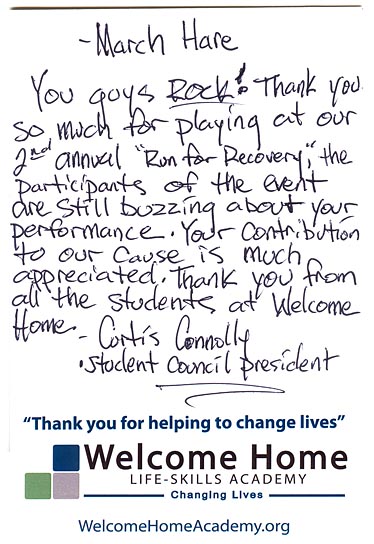 - March Hare
You guys Rock! Thank you
so much for playing at our
2nd annual "Run for Recovery", the
participants of the event
are still buzzing about your
performance. Your Contribution
to our Cause is much
appreciated. Thank you from
all the students at Welcome
Home.
- Curtis Connolly
• student Council president
“Thank you for helping to change lives”
Welcome Home
LIFE-SKILLS ACADEMY
Changing Lives
WelcomeHomeAcademy.org